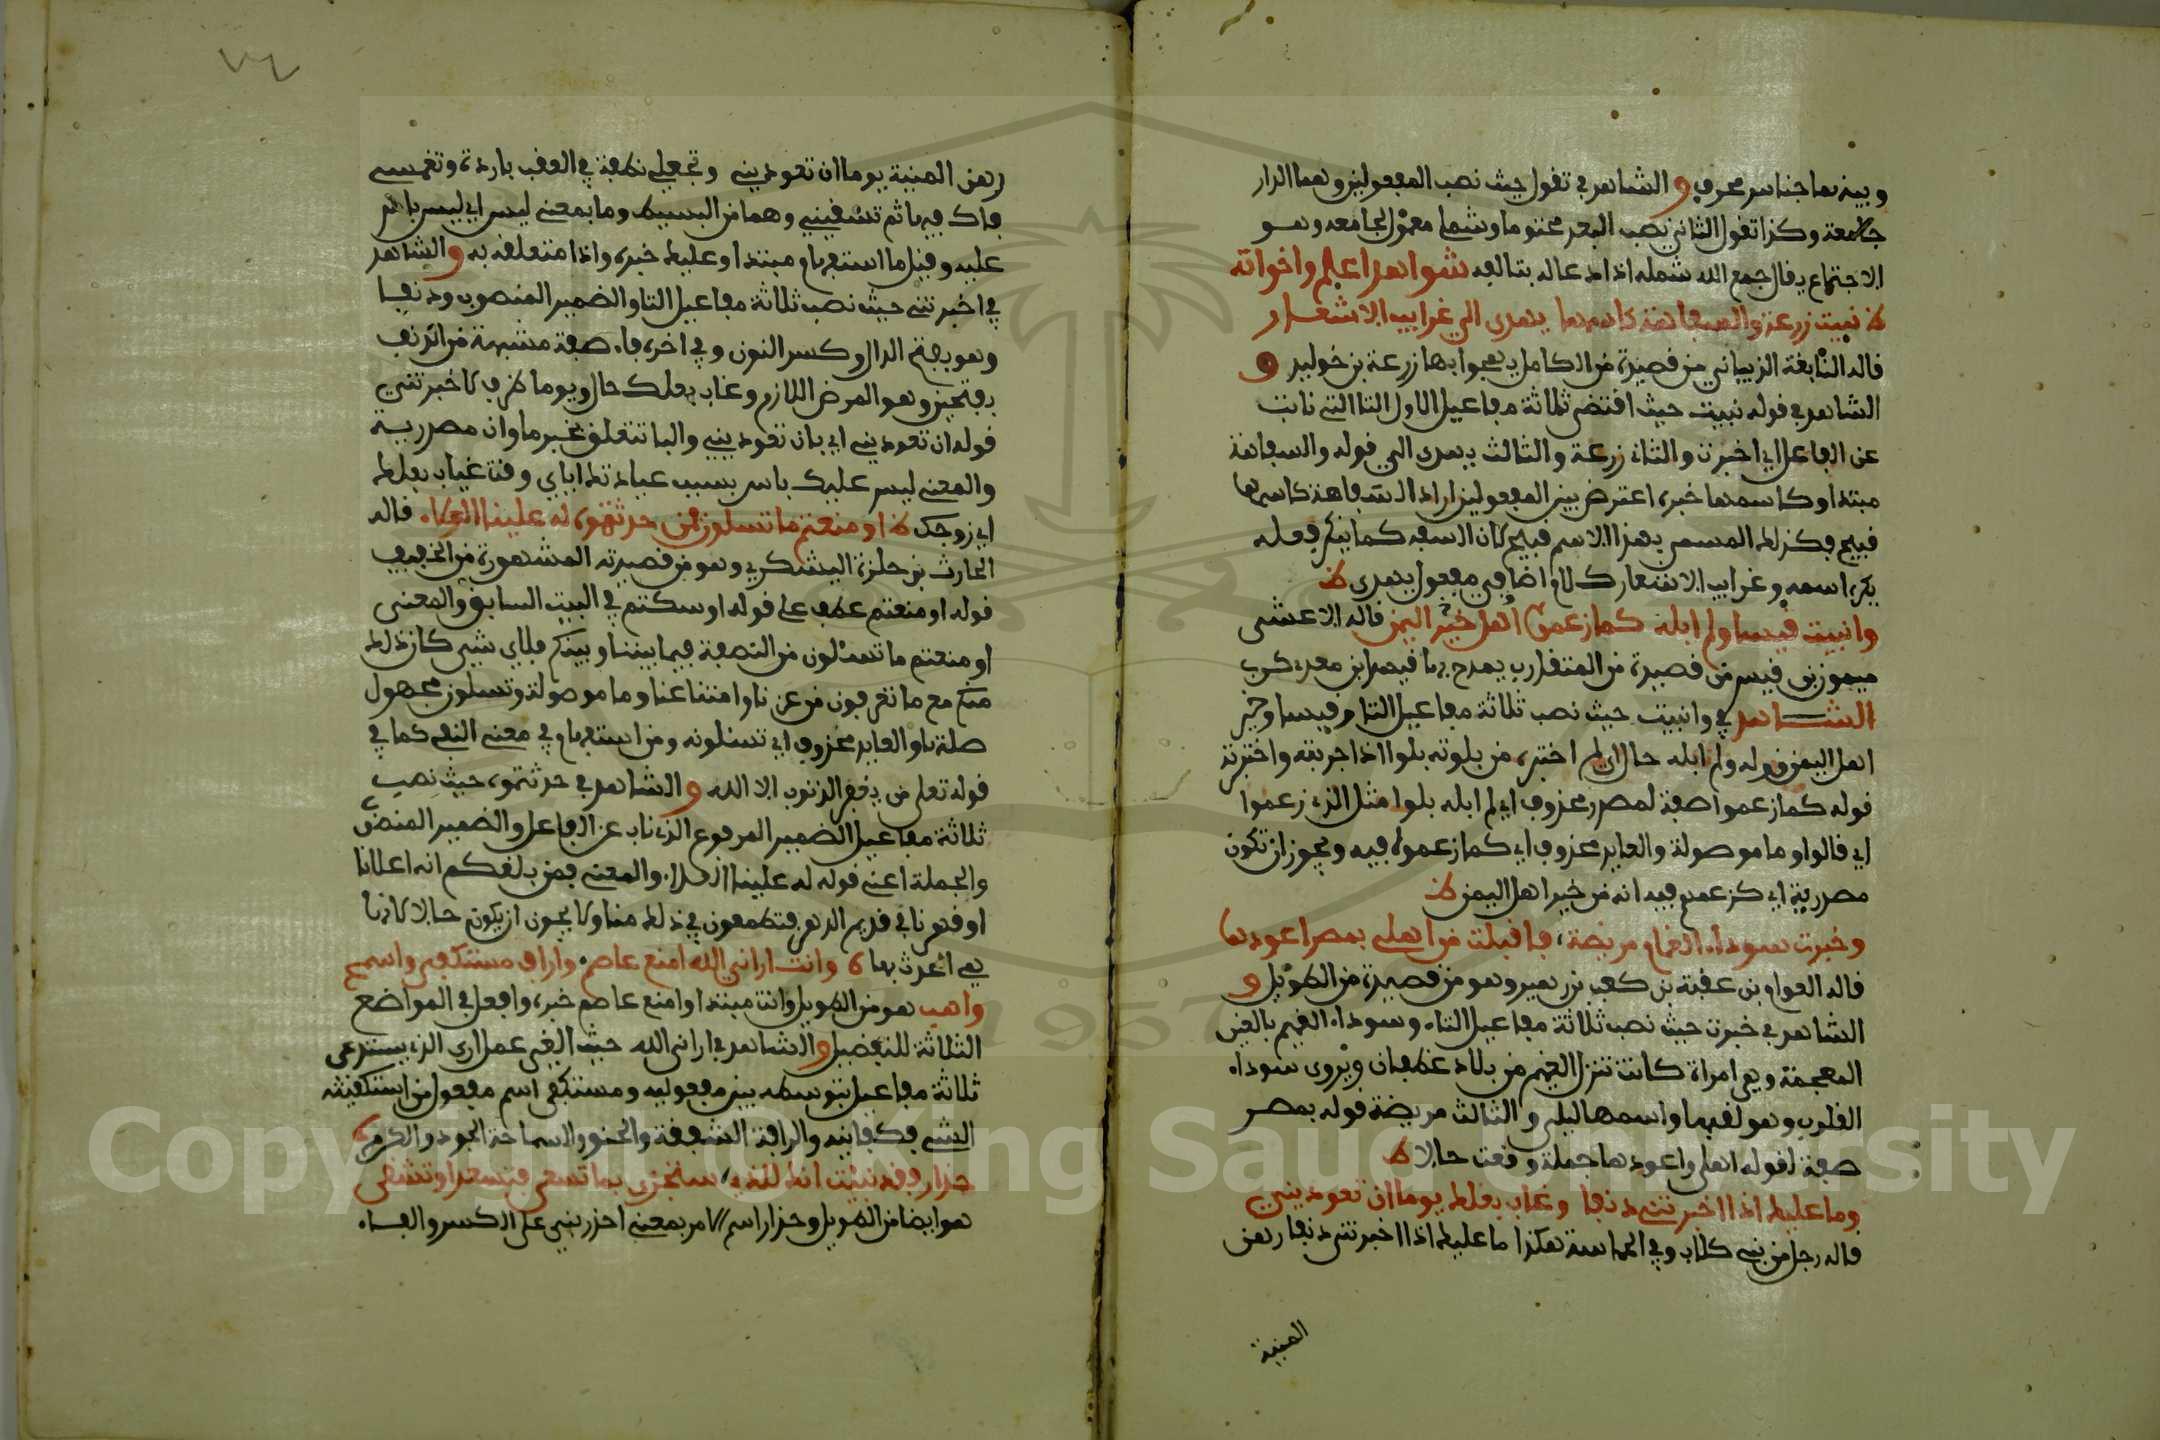 وبينهما جناس محرف والشاهد في تقول حيث نصب المفعولين وهما الدار
جامعة وكذا تقول الثاني نصب البعد محتوما وشملي معمول لجامعة وهو
الاجتماع يقال جمع الله شمله اذا دعا له بتالفه شواهد اعلم واخواته
ظ نبيت زرعة والسفاهة كاسمها يهدي الي غرايب الاشعار
قاله النابغة الذبياني من قصيدة من الكامل يهجوا بها زرعة بن خوليد و
الشاهد في قوله نبيت حيث اقتضى ثلاثة مفاعيل الاول التا التي نابت
عن الفاعل اي اخبرت والثاني زرعة والثالث يهدي الي قوله والسفاهة
مبتدا وكاسمها خبره اعترض بين المفعولين اراد ان السفاهة كاسمها
قبيح فكذلك المسمى بهذا الاسم قبيح لان السفه كما ينكر فعله
يكره اسمه وغرايب الاشعار كلام اضافي مفعول يهدي ظ
وانبيت قيسا ولم ابله كما زعموا اهل خير اليمن قاله الاعشى
ميمون بن قيس من قصيدة من المتقارب يمدح بها قيس ابن معدي كرب
الشاهد في وانبيت حيث نصب ثلاثة مفاعيل التاء وقيسا وخير
اهل اليمن وقوله ولم ابله حال اي لم اختبره من بلوته بلوا اذا جربته واختبرته
قوله كما زعموا صفة لمصدر محذوف اي لم ابله بلوا مثل الذي زعموا
اي قالوا وما موصولة والعايد محذوف اي كما زعموه فيه ويجوز ان تكون
مصدرية اي كزعمهم فيه انه من خير اهل اليمن ظ
وخبرت سوداء الغمام مريضة، فاقبلت من اهلي بمصر اعودها
قاله العوام بن عقبة بن كعب بن زهير وهو من قصيدة من الطويل و
الشاهد في خبرت حيث نصب ثلاثة مفاعيل التاء وسوداء الغيم بالغين
المعجمة وهي امراة كانت تنزل الغيم من بلاد غطفان ويروى سوداء
القلوب وهو لقبها واسمها ليلى والثالث مريضة قوله بمصر
صفة لقوله اهلي واعودها جملة وقعت حالا ظ
وما عليك اذا اخبرتني دنفا وغاب بعلك يوما ان تعوديني
قاله رجل من بني كلاب وفي الحماسة هكذا ما عليك اذا اخبرتني دنفا رهن
المنية
٧٦
رهن المنية يوما ان تعوديني وتجعلي نطفة في القعب باردة، وتغمسي
فاك فيها ثم تسقيني وهما من البسيط وما بمعنى ليس اي ليس باس
عليه وقيل ما استفهام مبتدا وعليك خبره واذا متعلقه به والشاهد
في اخبرتني حيث نصب ثلاثة مفاعيل التا والضمير المنصوب ودنفا
وهو بفتح الدال وكسر النون وفي اخره فاء صفة مشبهة من الدنف
بفتحتين وهو المرض اللازم وغاب بعلك حال ويوما ظرف لاخبرتني
قوله ان تعوديني اي بان تعوديني والبا تتعلق بخبر ما وان مصدرية
والمعنى ليس عليك باس بسبب عيادتك اياي وقت غياب بعلك
اي زوجك ظ او منعتم ما تسلون فمن حدثتموه له علينا العلاء قاله
الحارث بن حلزة اليشكري وهو من قصيدته المشهورة من الخفيف
قوله او منعتم عطف على قوله او سكتم في البيت السابق والمعنى
او منعتم ما تسئلون من النصفة فيما بيننا وبينكم فلاي شيء كان ذلك
منكم مع ما تعرفون من عزنا وامتناعنا وما موصولة وتسلون مجهول
صلة ما والعايد محذوف اي تسئلونه ومن استفهام في معنى النفي كما في
قوله تعلى من يغفر الذنوب الا الله والشاهد في حدثتموه حيث نصب
ثلاثة مفاعيل الضمير المرفوع الذي ناب عن الفاعل والضمير المنصوب
والجملة اعني قوله له علينا العلاء والمعنى فمن بلغكم انه اعلانا
او قهرنا في قديم الدهر فتطمعون في ذلك منا ولا يجوز ان يكون حالا
هي اخرت بها ظ وانت اراني الله امنع عاصم، واراف مستكفى واسمح
واهب هو من الطويل وانت مبتدا وامنع عاصم خبره وافعل في المواضع
الثلاثة للتفضيل والشاهد في اراني الله حيث الغي عمل ارى الذي يستدعي
ثلاثة مفاعيل بتوسطه بين مفعوليه ومستكفى اسم مفعول من استكفيته
الشيء فكفانيه والرافة الشفقة والحنو والسماحة الجود والكرم ظ
حذار فقد نبيت انك للذي، ستجزى بما تسعى فتسعد او تشقى
هو ايضا من الطويل وحذار اسم لامر بمعنى احذر بني على الكسر والفاء